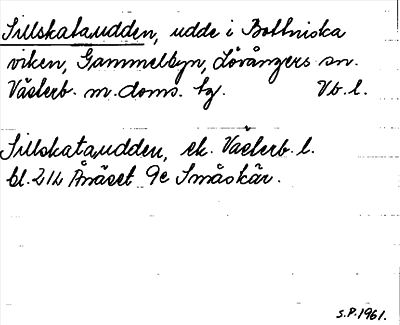 Sillskataudden, udde i Bottniska
viken, Gammelbyn, Lövångers sn.
Västerb. m. doms. tg. Vb. l.
Sillskataudden, ek. Västerb. l.
bl. 21L Ånäset 9c Småskär.
S.P. 1961.